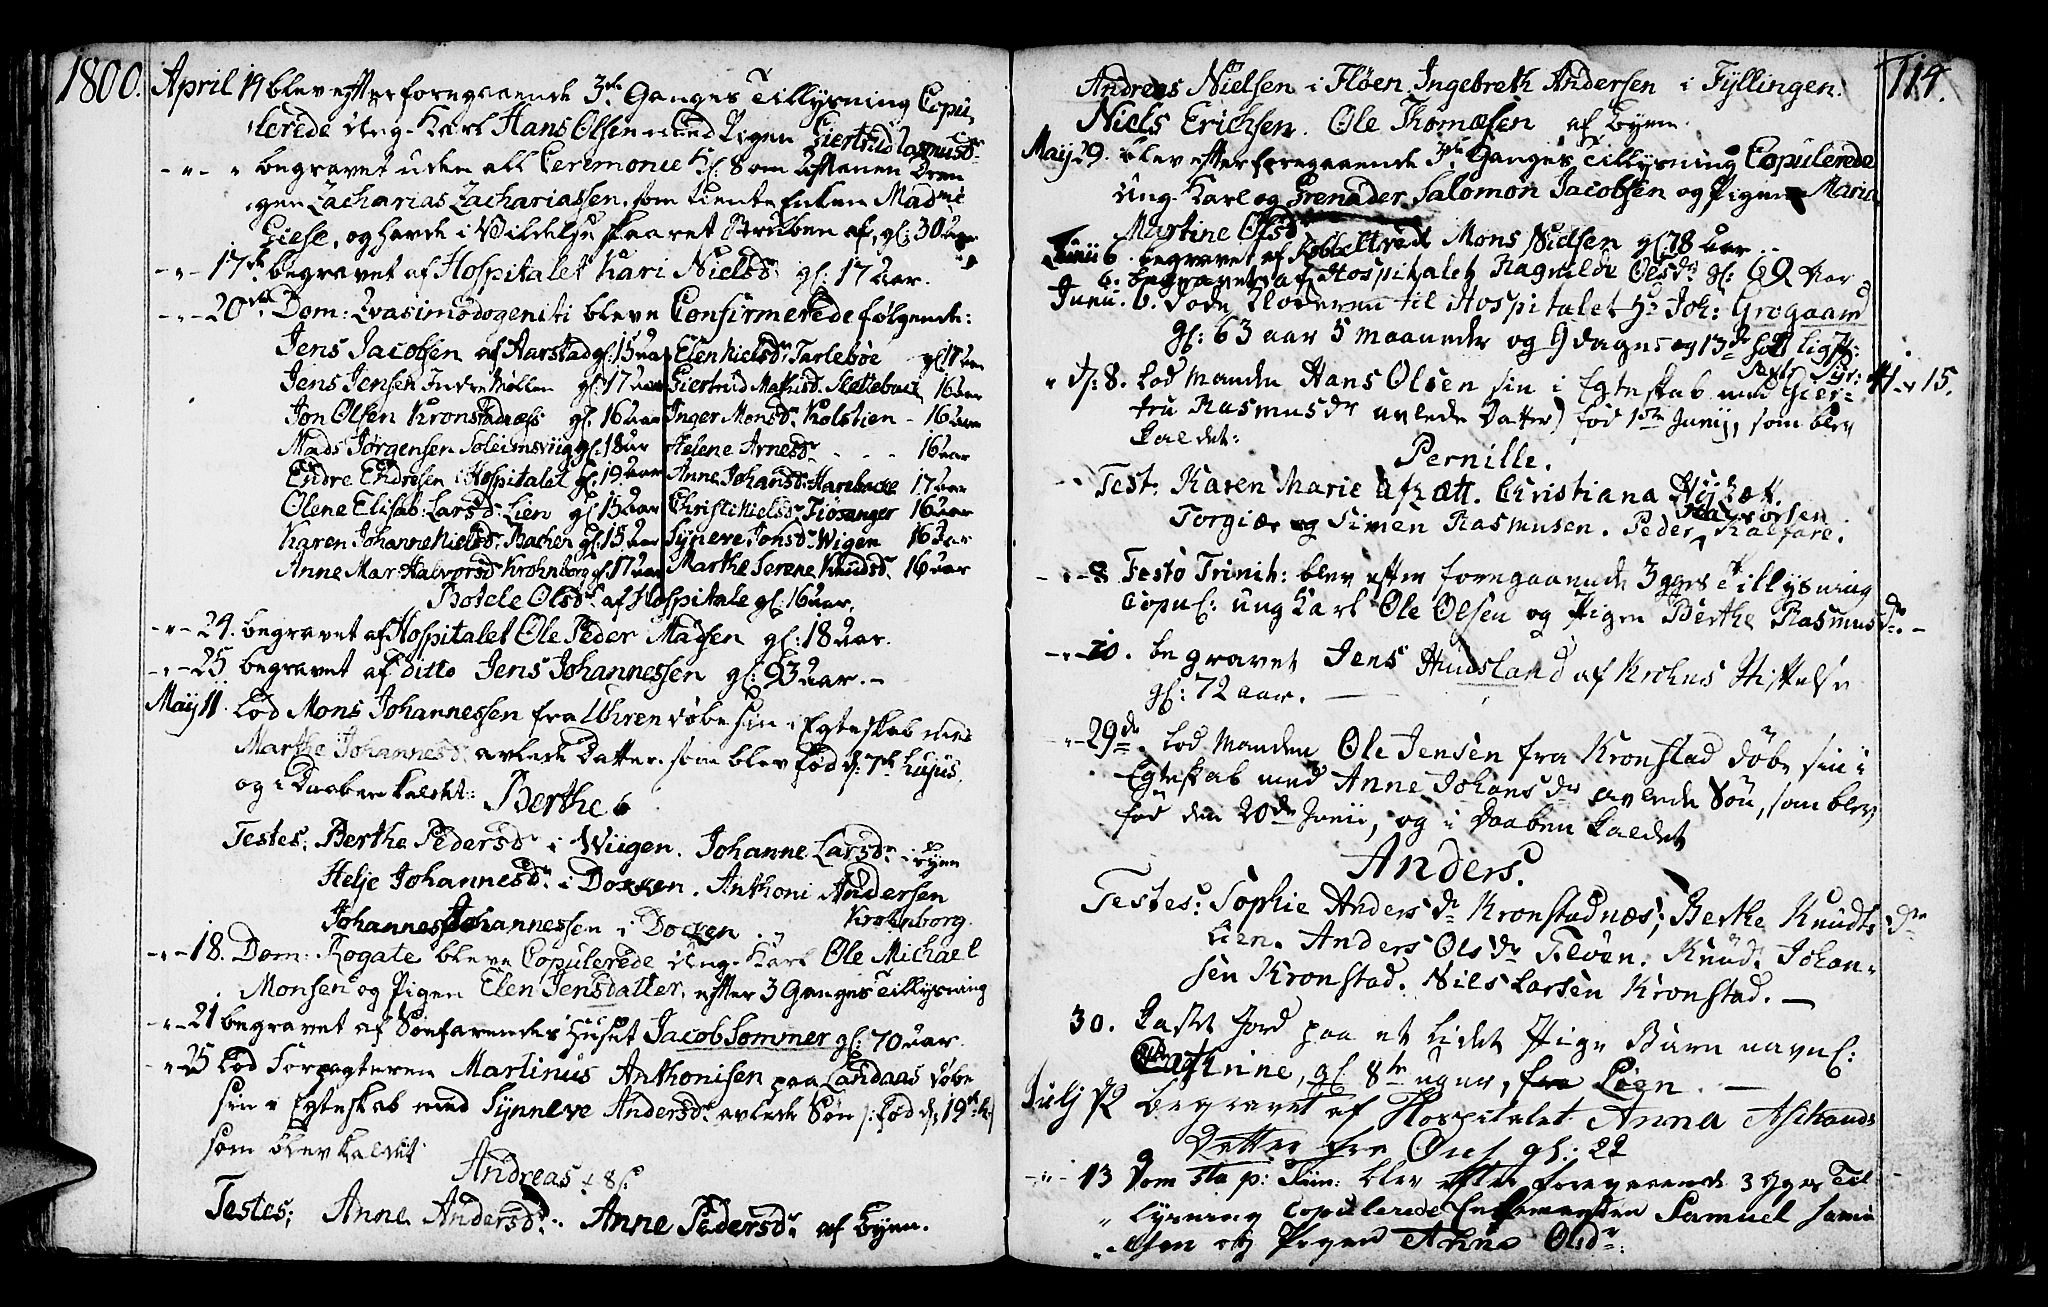 1800. April 19 blev efter foregaaende 3de Ganges Tillysning Copu-
lerede Ung-Karl Hans Olsen med Pigen Giertrud Rasmusdr
- " - " begravet uden all Ceremonie Kl. 8 om Aftenen Dren
gen Zacharias Zachariassen, som tiente Enken Madme
Giese, og havde i Vildelse skaaret Struben af, gl: 30 aar
- " - 17de begravet af Hospitalet Kari Nielsdr gl: 17 aar.
- " - 20de Dom: Qvasimodogeniti bleve Confirmerede følgende:
Jens Jacobsen af Aarstad gl: 15 aar Elen Nielsdr Tarlebøe gl 17 aar
Jens Jensen Indre Møllen gl: 17 aar Giertrud Mathisdr 16 aar
Jon Olsen Kronstadnæss gl. 16 aar Inger Monsdr Kolstien - 16 aar
Mads Jørgensen Soleimsviig gl. 18 aar Helene Arnesdr - - - - 16 aar
Endre Endresen i Hospitalet gl. 19 aar Anne Johansdr Harebacke 17 aar
Olene Elisab: Larsdr Lien gl 15 aar Christi Nielsdr Fiøsanger 16 aar
Karen Johanne Nielsdr Bachen gl: 15 aar Synneve Jonsdr Wigen 16 aar
Anne Mar Halvorsdr Krohnborg gl 17 aar Marthe Serene Knudsdr 16 aar
Botele Olsdr af Hospitale gl: 16 aar.
- " - 24. begravet af Hospitalet Ole Peder Madsen gl: 18 aar.
- " - 25 begravet af Ditto Jens Johannessen gl: 93 aar. -
Maij 11. Lod Mons Johannessen fra Uhren døbe sin i Egteskab med
Marthe Johannesdr avlede Datter som blev fød d: 7de hujus,
og i Daaben kaldet: Berthe
Testes: Berthe Pedersdr i Wiigen. Johanne Larsdr i Byen
Helje Johannesdr i Docken. Anthoni Andersen
Johannes Johannessen i Docken. Krohnborg.
- " - 18. Dom: Rogate bleve Copulerede Ung-Karl Ole Michael
Monsen og Pigen Elen Jensdatter, efter 3 Ganges Tillysning
- " - 21 begravet af Søefarendes Huset Jacob Sommer gl: 70 aar.
" 25 Lod Forpagteren Martinus Anthonisen paa Landaas døbe
sin i Egteskab med Synneve Andersdr avlede Søn /: fød d: 19de
som blev kaldet
Andreas
Testes; Anne Andersdr. Anne Pedersdr af Byen.
114.
Andreas Nielsen i Fløen Ingebreth Andersen i Fyllingen.
Niels Erichsen. Ole Thomæsen af Byen.
Maij 29. blev efter foregaaende 3de Ganges Tillysning Copulerede
Ung-Karl og Grenader Salomon Jacobsen og Pigen Maria
Martine Olsdr
Junii 6. begravet af Kobbeltvedt Mons Nielsen gl 78 aar. -
6. begravet af Hospitalet Ragnilde Olsdr gl: 69 aar
Junii. 6. døde til Hospitalet Hr Joh: Grogaard
gl: 63 aar 5 maaneder og 9 dage og 13de
" d: 8. Lod Manden Hans Olsen sin i Egteskab med Gier-
tru Rasmusdr avlede Datter fød 1ste Junij, som blev
kaldet:
15.
Pernille.
Test: Karen Marie Christiana
Torgiær og Simen Rasmusen. Peder Kalfare.
- " - 8 Festo Trinit: blev efter foregaaende 3 gges Tillysning
Copul: ung Karl Ole Olsen og Pigen Berthe Rasmusdr. -
- " - 20. begravet Jens Hudsland af Krohns Stiftelse
gl: 72 aar. -
" - 29de. Lod Manden Ole Jensen fra Kronstad døbe sin i
Egteskab med Anne Johansdr avlede Søn, som blev
fød den 20de Junii, og i Daaben kaldet
Anders.
Testes: Sophie Andersdr Kronstadnæs; Berthe Knudtsdr
Lien. Anders Olsdr Fløen: Knud. Johan-
sen Kronstad. Nils Larsen Kronstad. -
30. Kastet Jord paa et lidet Pige Barn navnl:
Cathrine, gl 8te uger, fra Løen. -
Julj begravet af Hospitalet Anna
Datter fra gl: 22
- " - 13 Dom 5ta p: Trin: blev efter foregaaende 3 gges Til-
" lysning Copulerede Enkemanden Samuel Samu
elsen og Pigen Anne Olsdr.